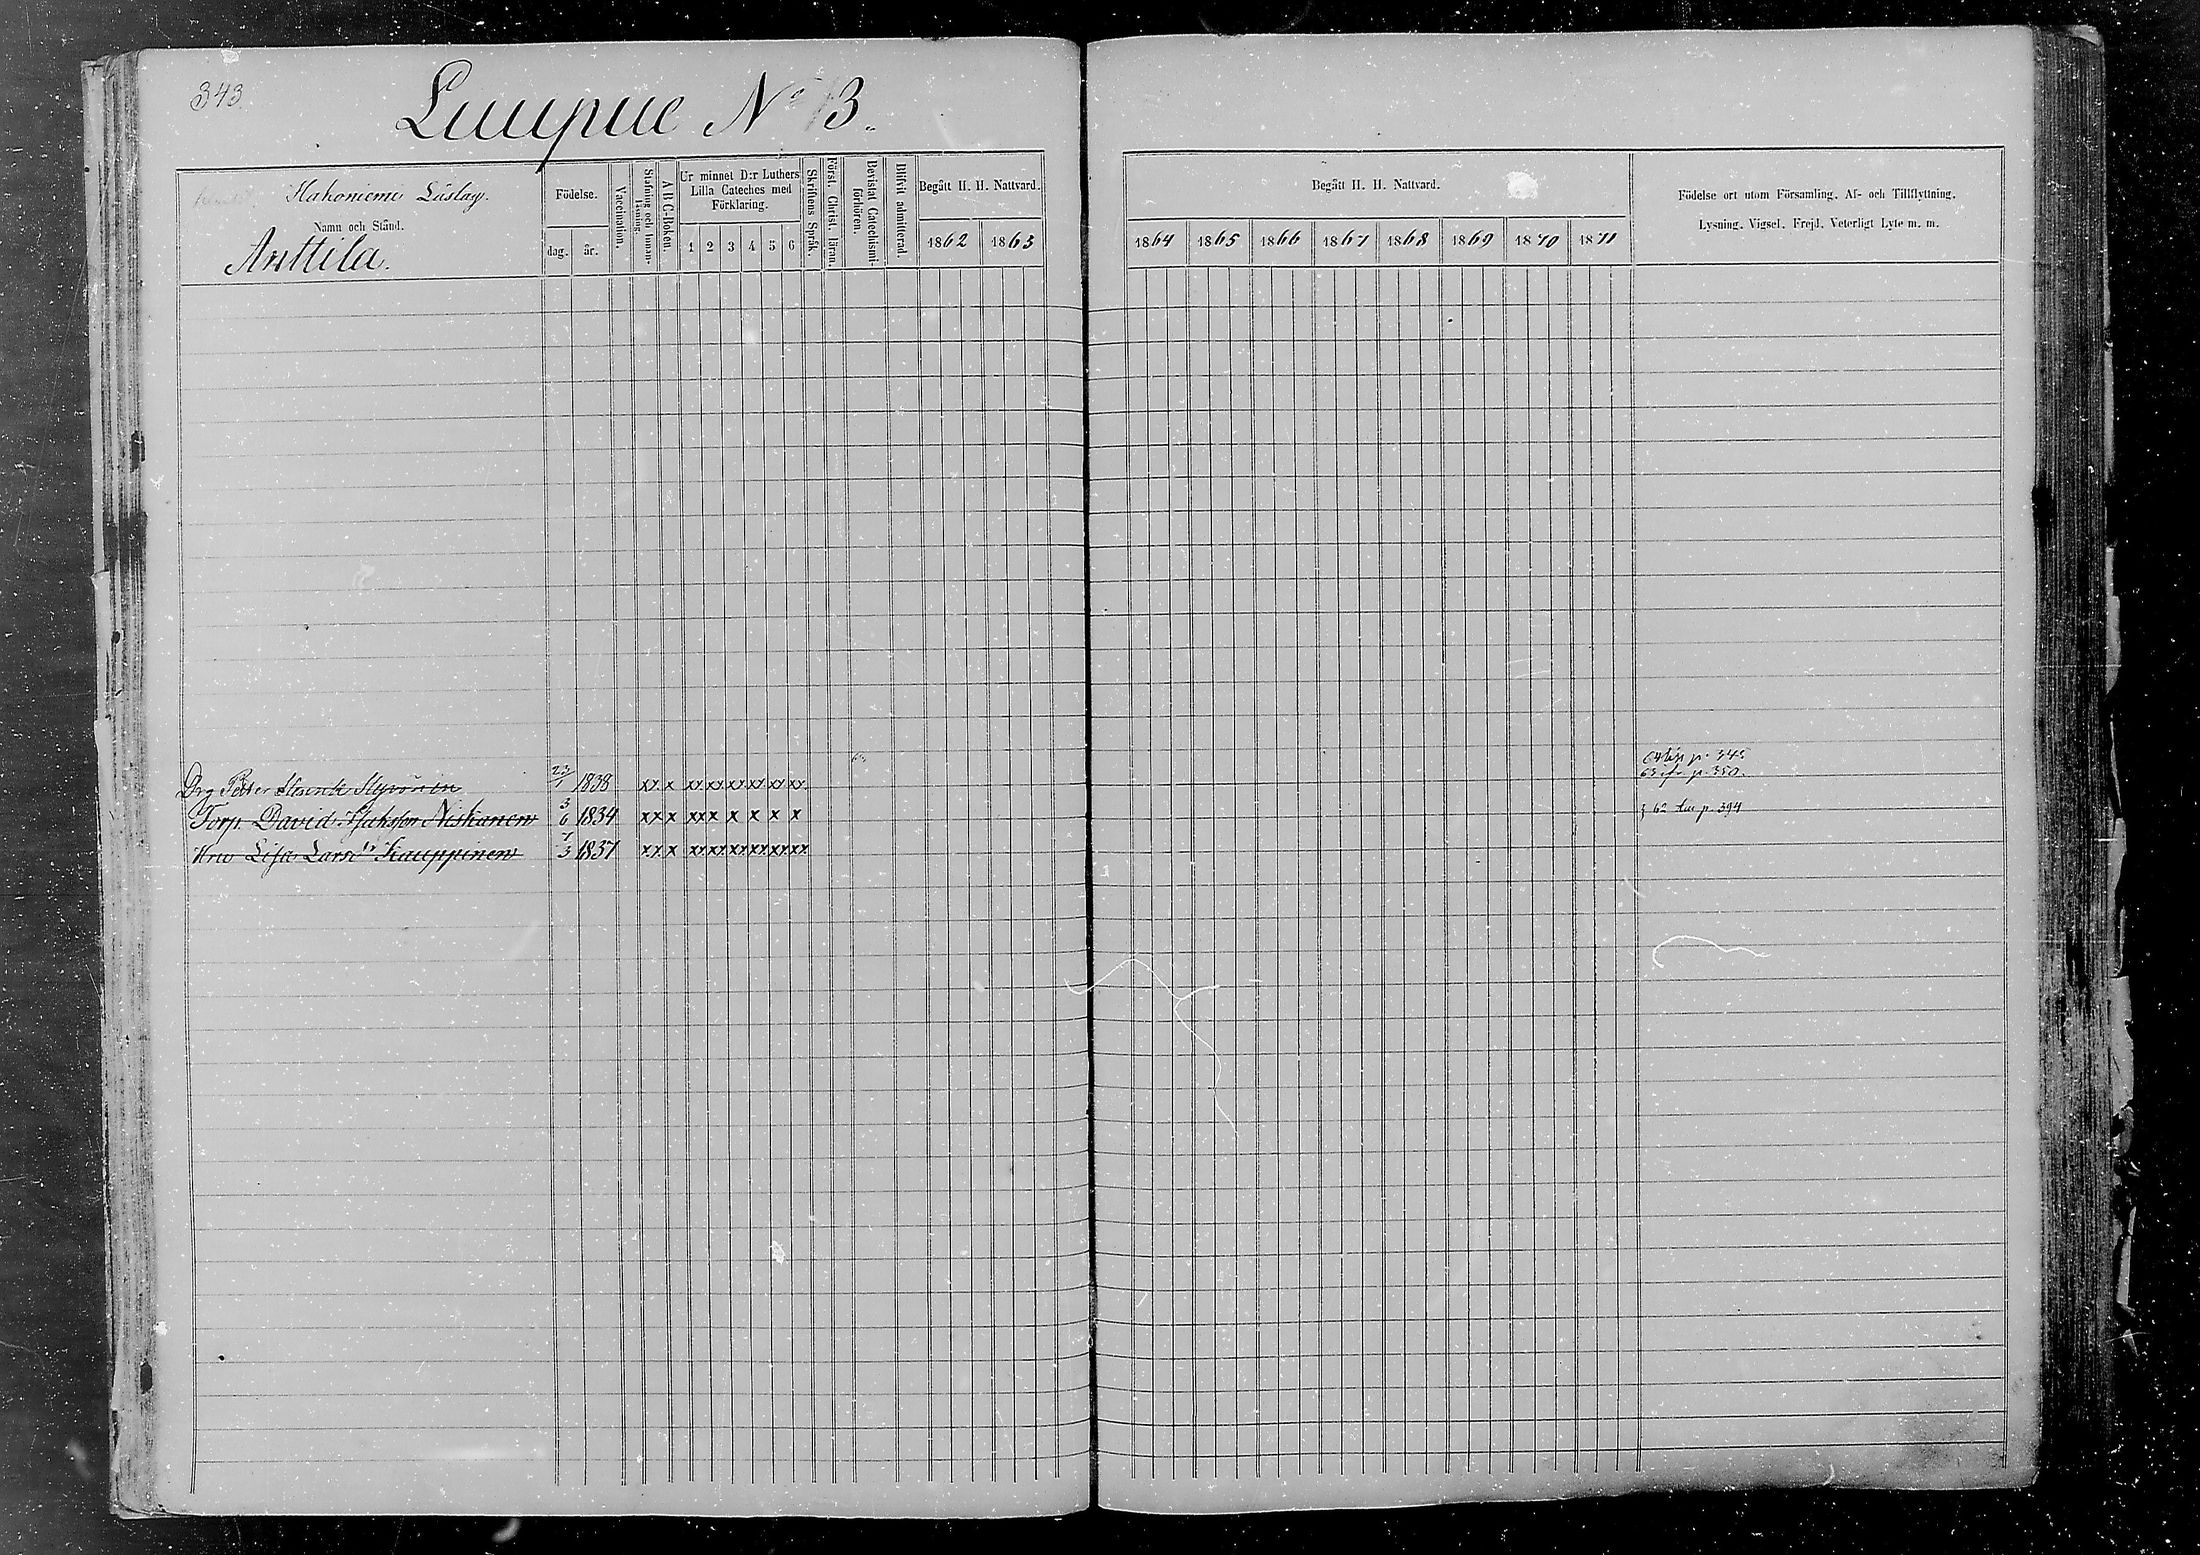 343.
Luupue No 13.
Hakoniemi Läslag.
Namn och Stånd.
Anttila.
Födelse.
dag. år.
Vaccination.
Stafning och Innanläsning.
A B C-Boken.
Ur minnet D:r Luthers
Lilla Cateches med
Förklaring.
1 2 3 4 5 6
Skriftens Språk.
Först. Christ. läran.
Bevistat Catechismiförhören.
Blifvit admitterad.
Begått H. H. Nattvard.
1862 1863
Begått H. H. Nattvard.
1864 1865 1866 1867 1868 1869 1870 1871
Födelse ort utom Församling. Af- och Tillflyttning.
Lysning. Vigsel. Frejd. Veterligt Lyte m. m.
p. 345
Drg Petter Henrik 23/1 1838 xx x xx xx xx xx xx xx 63 p. 350.
Torp. David Niskanen 3/6 1834 xx x xx x x x x x 62 p. 394
Hru Lisa Larsdr Kauppinen 1/3 1837 xx x xx xx xx xx xx xx